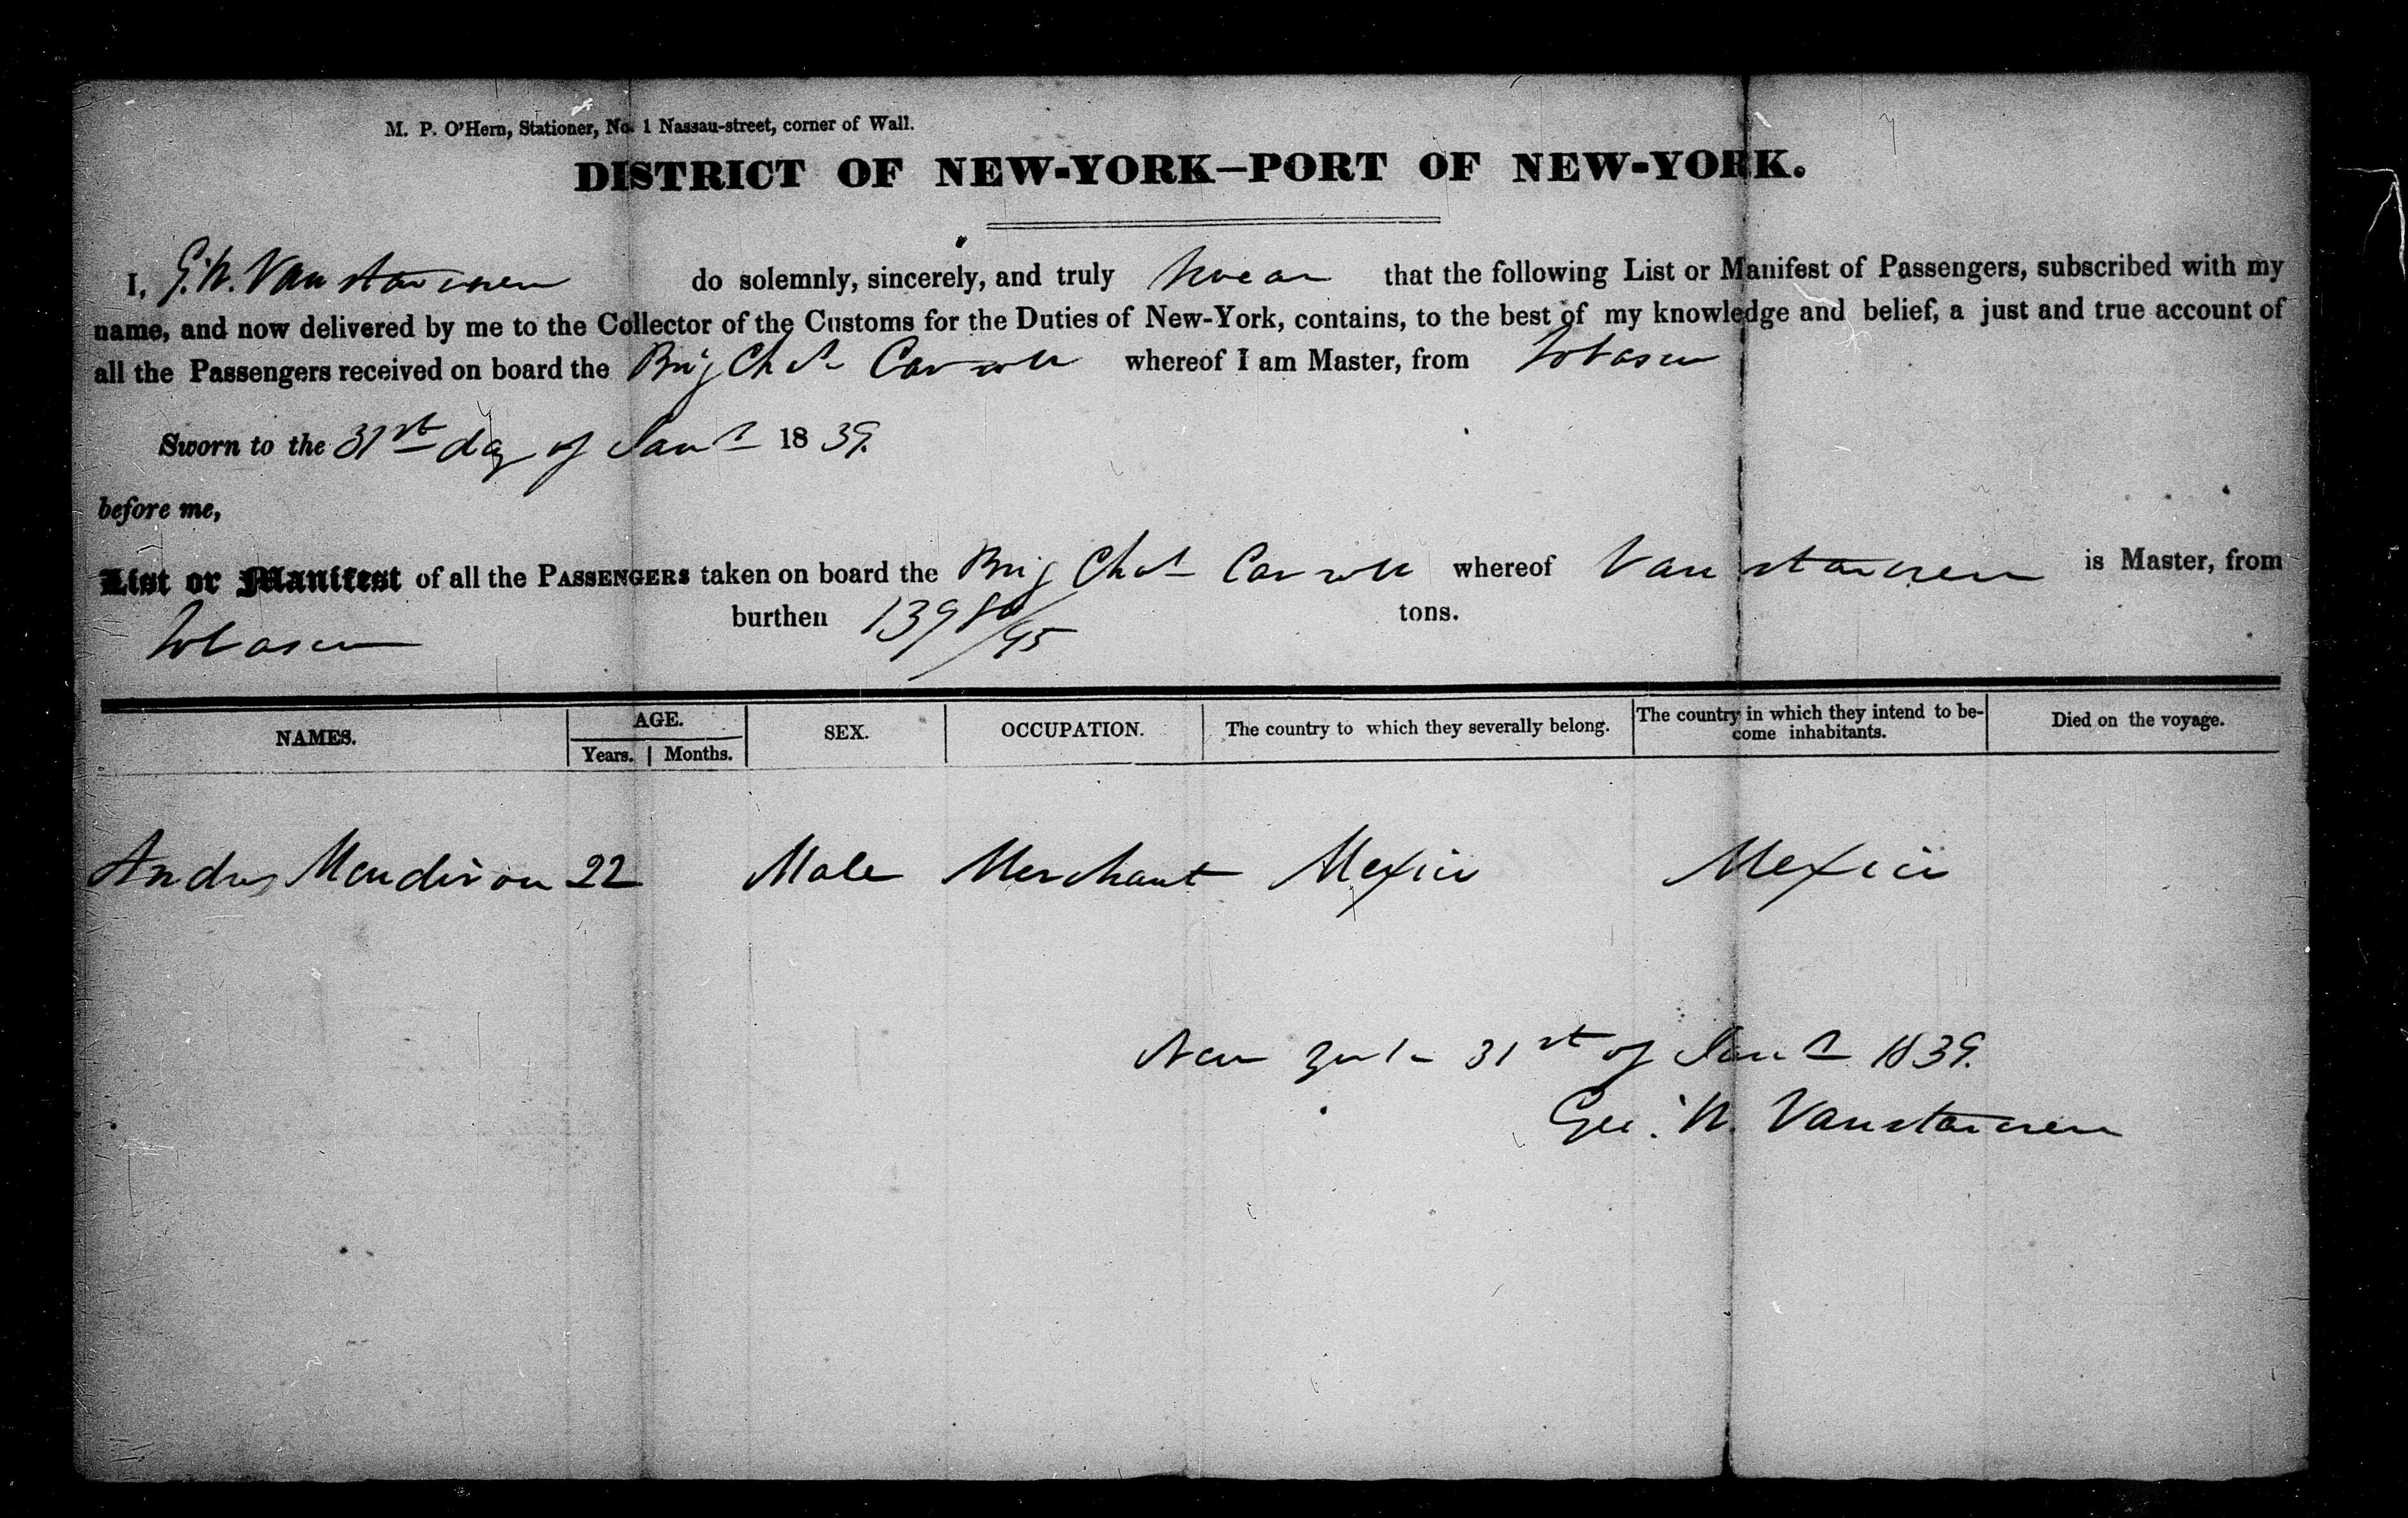 M. P. O'Hern, Stationer, No. 1 Nassau-street, corner of Wall.
DISTRICT OF NEW-YORK—PORT OF NEW-YORK.
I, G. W. do solemnly, sincerely, and truly swear that the following List or Manifest of Passengers, subscribed with my
name, and now delivered by me to the Collector of the Customs for the Duties of New-York, contains, to the best of my knowledge and belief, a just and true account of
all the Passengers received on board the Brig Chas Carroll whereof I am Master, from Tobasco
Sworn to the 31st day of Jany 1839.
before me,
List or Manifest of all the PASSENGERS taken on board the Brig Chas Carroll whereof is Master, from
Tobasco burthen 139 80/95 tons.
NAMES. AGE. SEX. OCCUPATION. The country to which they severally belong. The country in which they intend to be-
come inhabitants. Died on the voyage.
Years. Months.
Andres 22 Male Merchant Mexico Mexico
New York 31st of Jany 1839.
Geo. W.